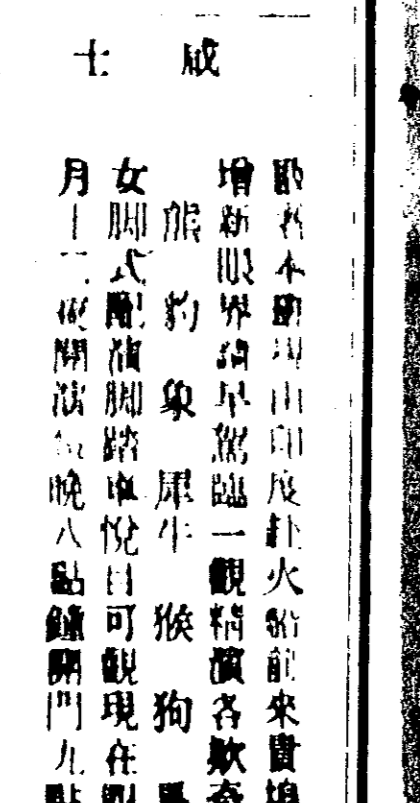 威士
啟者本團班由印度赴火船前來貴埠
增新眼界請早駕臨一觀精演各款奇
熊豹象犀牛猴狗
女脚式配演脚踏車悅目可觀現在
月十二夜開演每晚八點鐘開門九點